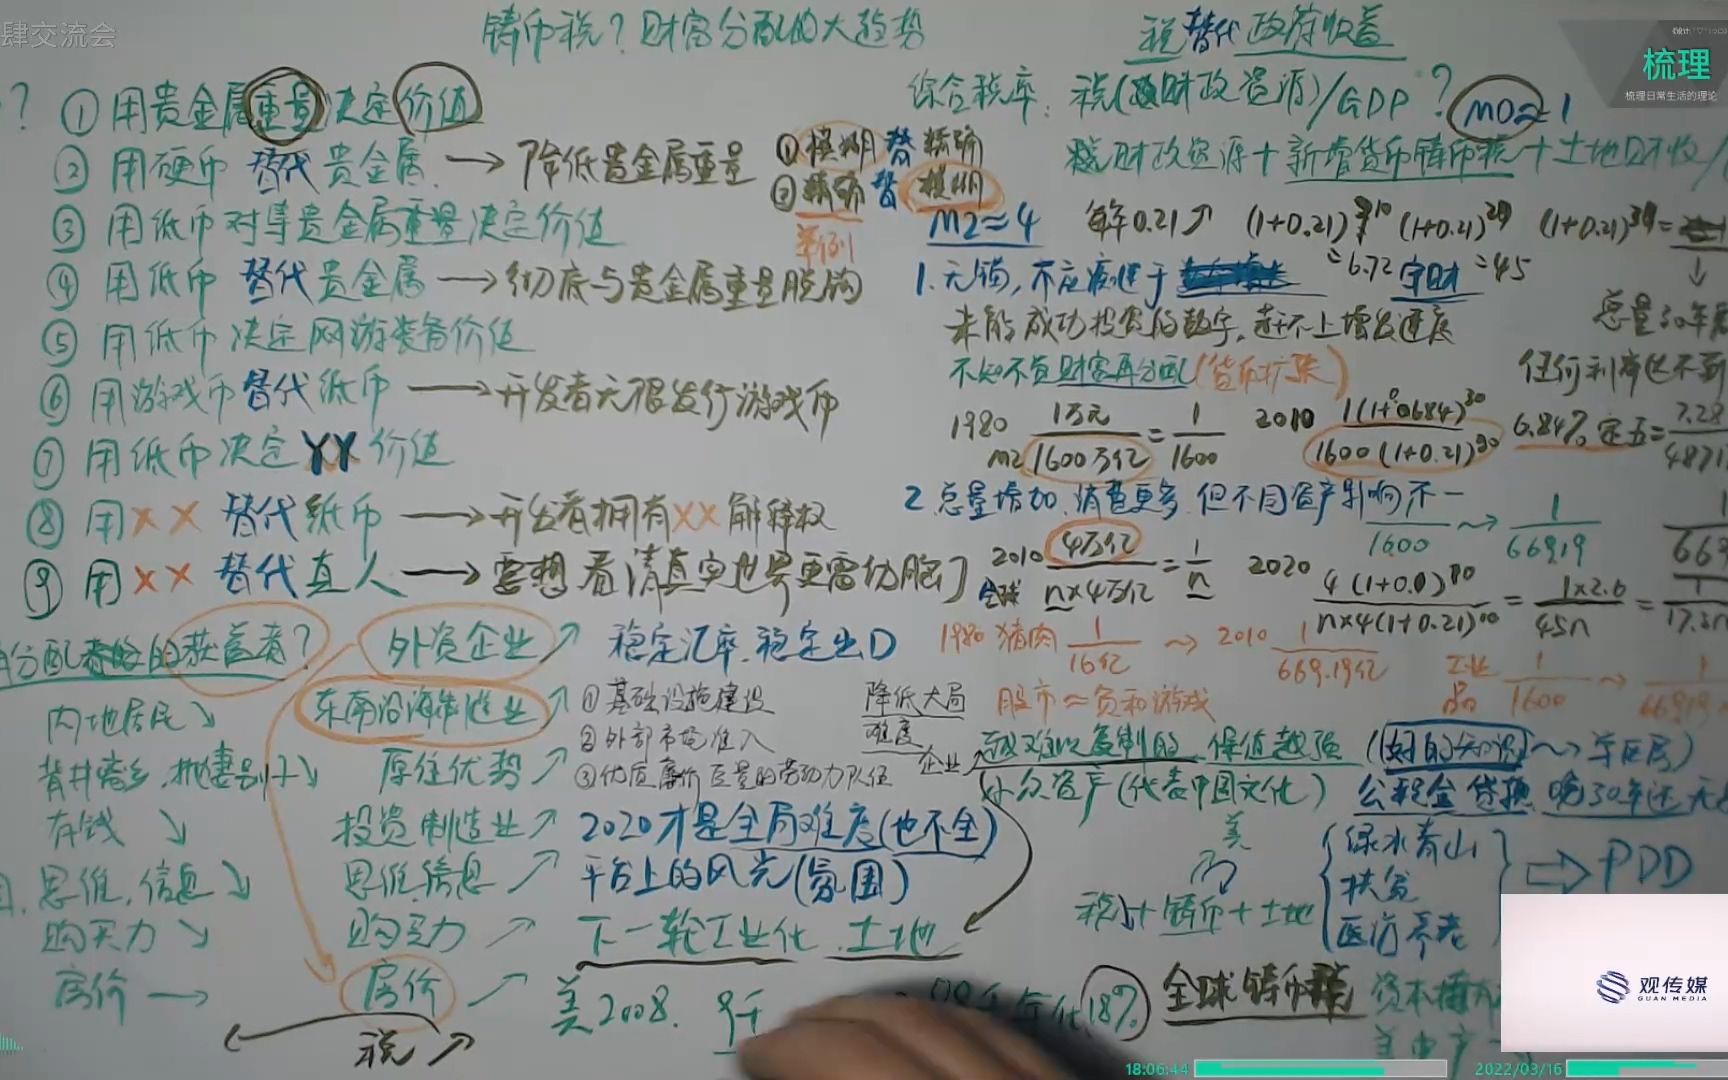 肆交流会
铸币税？财富分配的大趋势
税替代政府收益
梳理
梳理日常生活的理论
？①用贵金属重量决定价值
②用硬币替代贵金属 → 降低贵金属重量
③用纸币对等贵金属重量决定价值
④用纸币替代贵金属 → 彻底与贵金属重量脱钩
⑤用纸币决定网游装备价值
⑥用游戏币替代纸币 → 开发者无限发行游戏币
⑦用纸币决定XX价值
⑧用XX替代纸币 → 开发者拥有XX解释权
⑨用XX替代真人 → 要想看清真实世界更需伤脑
①模糊替精确
②精确替模糊
举例
综合税率：税(财政资源)/GDP？ M0≈1
税财政资源+新增货币铸币税+土地财政/
M2≈4 每年0.21↗ (1+0.21)^10 (1+0.21)^20 (1+0.21)^30=
=6.72 守财 =45
1.无钱,不应疯狂于
未能成功投资的数字,赶不上增发速度
总量30年
不知不觉财富再分配(货币扩张)
任何利率达不到
1980 1万元/M2 1600万亿=1/1600
2010 1(1+0.0684)^30/1600(1+0.21)^30 6.84%定五=7.28/4871
2.总量增加,消费更多,但不同资产影响不一
1/1600 ~→ 1/66919
2010 4万亿/全球 n×4万亿=1/n
2020 4(1+0.1)^10/n×4(1+0.21)^10=1×2.6/45n=1/17.3n
1980 猪肉 1/16亿 ~→ 2010 1/669.19亿
工业品 1/1600 ~→ 1/66919
分配的获益者？
外资企业↗ 稳定汇率.稳定出口
内地居民↘
东南沿海制造业↗ ①基础设施建设
②外部市场准入
③优质廉价巨量的劳动力队伍
降低大局难度
股市≈负和游戏
背井离乡,抛妻别子↘
原住优势↗
企业↗越难以复制的 保值越强(好的知识~→学区房)
小众资产(代表中国文化)
公积金贷款 晚30年还
有钱↘
投资制造业↗ 2020才是全局难度(也不全)
思维,信息↘
思维信息↗ 平台上的风光(氛围)
美
税+铸币+土地
绿水青山
扶贫
医疗养老
⇒PDD
购买力↘
购买力↗ 下一轮工业化.土地
房价→
房价↗ 美2008.
18% 全球铸币税
税↗
观传媒
GUAN MEDIA
18:06:44
2022/03/16